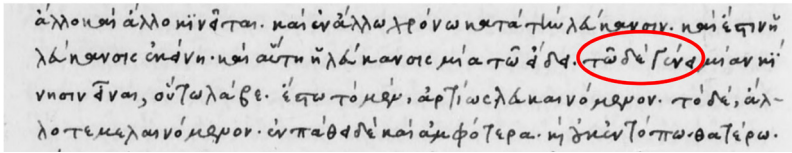 ἄλλο καὶ ἄλλο κινεῖται· καὶ ἐν ἄλλω χρόνω κατὰ τὴν λεύκανσιν· καὶ ἔστιν ἡ
λεύκανσις ἐκείνη· καὶ αὕτη ἡ λεύκανσις μία τῶ εἴδει· τῶ δὲ γένει μίαν κί
νησιν εἶναι, οὕτω λάβε· ἔστω τὸ μὲν, ἀρτίως λευκαινόμενον· τὸ δὲ, ἄλ-
λοτε μελαινόμενον· ἐν πάθει δὲ καὶ ἀμφότερα· ἢ ἐν τόπω θατέρω·